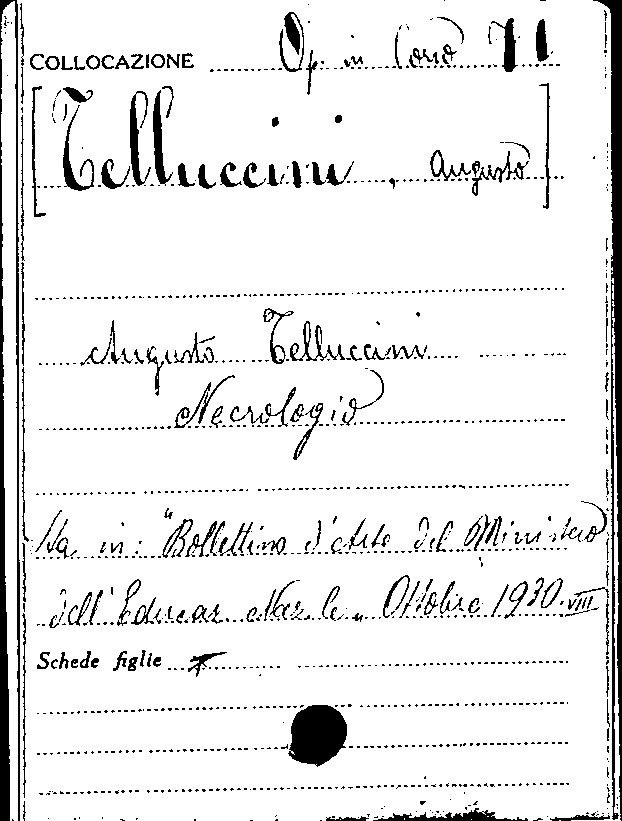 COLLOCAZIONE Op. in Corso 71
[Telluccini, Augusto]
Augusto Telluccini
Necrologio
Sta in: "Bollettino d'Arte del Ministero
dell'Educaz. Naz.le„ Ottobre 1930. VIII
Schede figlie